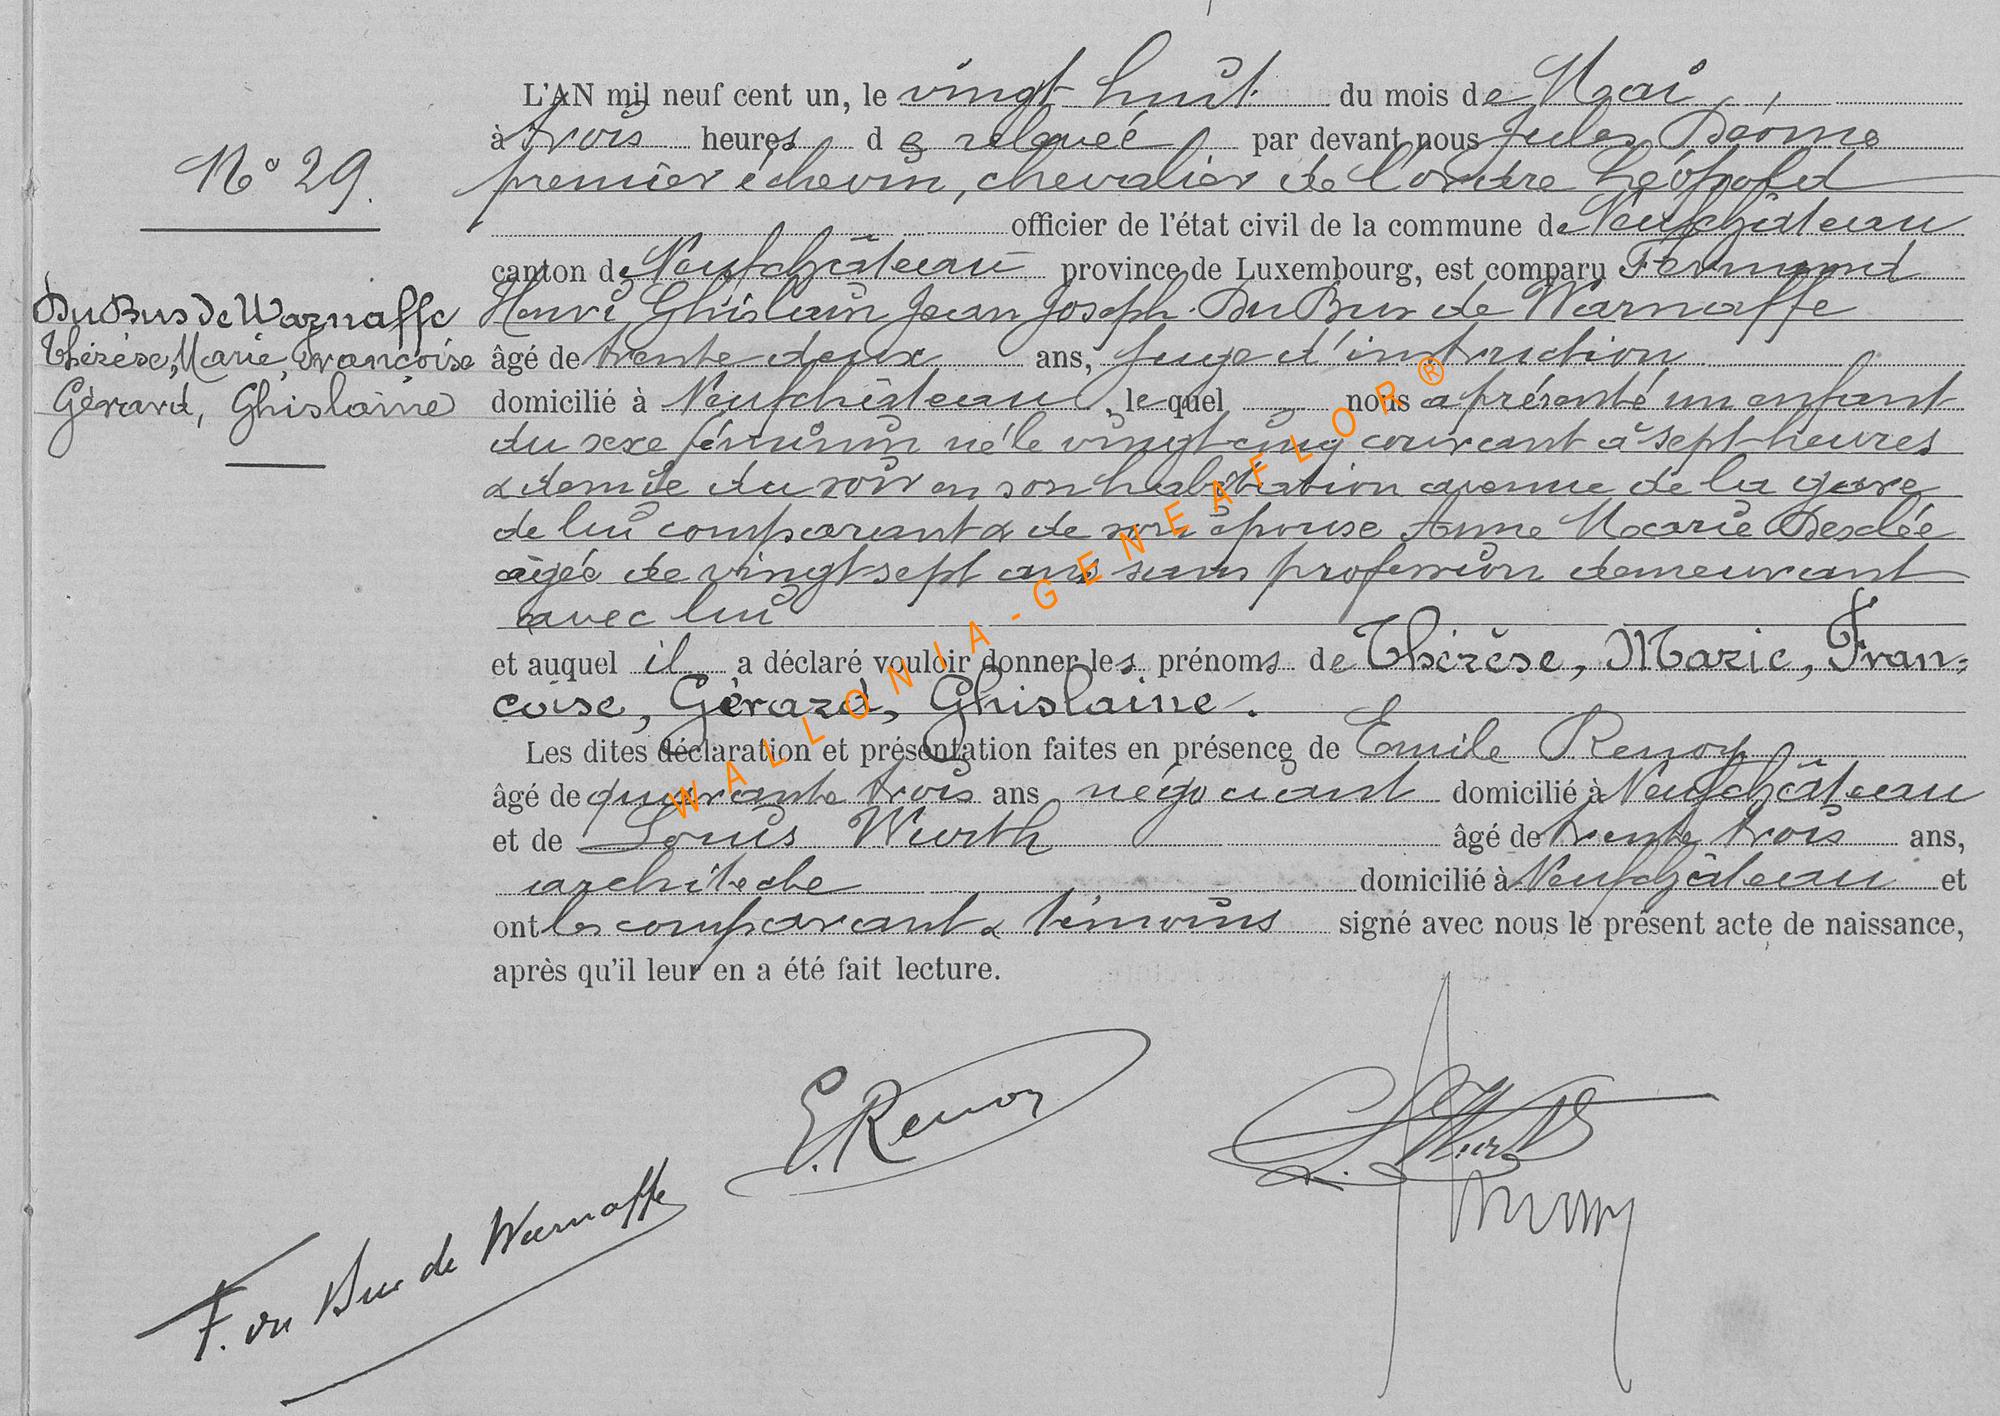 N° 29.
Du Bus De Warnaffe
Thérèse, Marie, Françoise
Gérard, Ghislaine
L'AN mil neuf cent un, le vingt huit du mois de Mai,
à trois heures de relevée par devant nous Jules
premier échevin, chevalier de l'ordre Léopold
officier de l'état civil de la commune de Neufchâteau
canton de Neufchâteau province de Luxembourg, est comparu Fernand
Henri Ghislain Jean Joseph Du Bus de Warnaffe
âgé de trente deux ans, juge d'instruction
domicilié à Neufchâteau, lequel nous a présenté un enfant
du sexe féminin né le vingt cinq courant à sept heures
& demie du soir en son habitation avenue de la gare
de lui comparant & de son épouse Anne Marie Desclée
âgée de vingt sept ans sans profession demeurant
avec lui
et auquel il a déclaré vouloir donner les prénoms de Thérèse, Marie, Fran-
çoise, Gérard, Ghislaine.
Les dites déclaration et présentation faites en présence de Emile Renoy
âgé de quarante trois ans négociant domicilié à Neufchâteau
et de Louis Wurth âgé de trente trois ans,
architecte domicilié à Neufchâteau et
ont les comparant & témoins signé avec nous le présent acte de naissance,
après qu'il leur en a été fait lecture.
E. Renoy
L. Wurth
F. du Bus de Warnaffe
WALLONIA-GENEAFLOR®